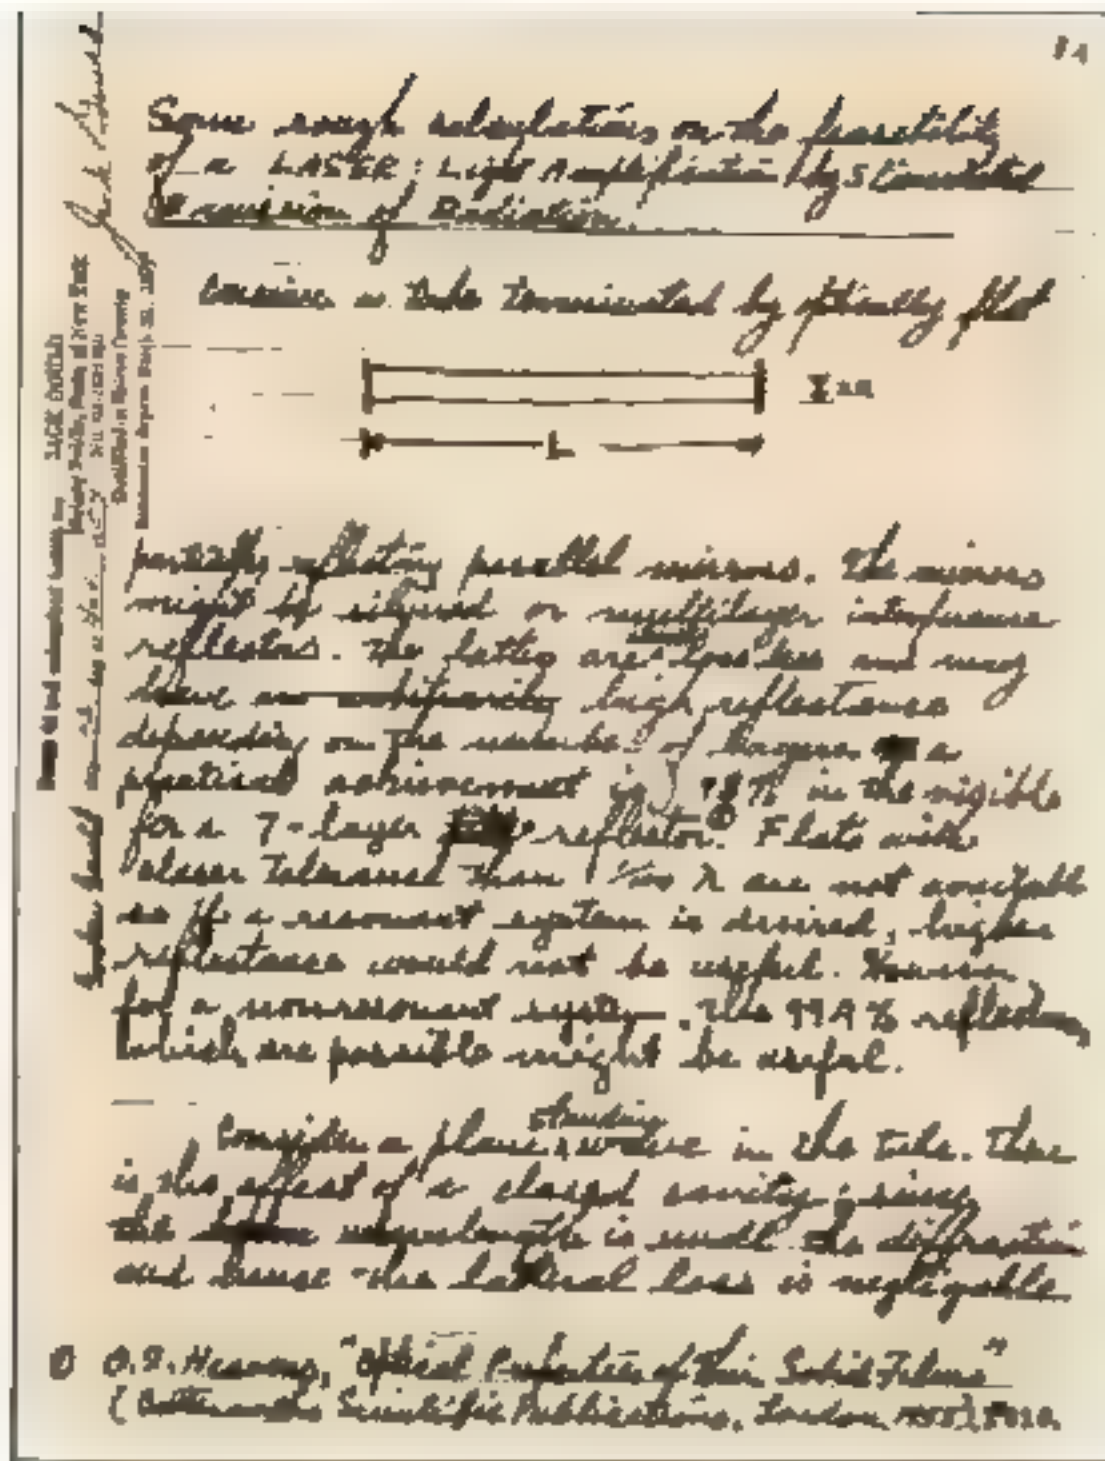 Some rough calculations on the feasibility
of a LASER: Light Amplification by Stimulated
Emission of Radiation.
Consider a tube terminated by optically flat
L
partially reflecting parallel mirrors. The mirrors
might be silvered or multilayer interference
reflectors. The latter are loss less and may
have high reflectance
depending on the number of layers. a
practical achievement is 98% in the visible
for a 7-layer reflector. Flats with
closer tolerance than λ are not available
so if a resonant system is desired, higher
reflectance would not be useful. However
for a nonresonant system, the 99.9% reflectors
which are possible might be useful.
Consider a plane standing wave in the tube. There
is the effect of a closed cavity; since
the wavelength is small the diffraction
and hence the lateral loss is negligable
O.S. Heavens, "Optical Properties of Thin Solid Films"
(Butterworths Scientific Publications, London, 1955)
JACK GOULD
Notary Public, State of New York